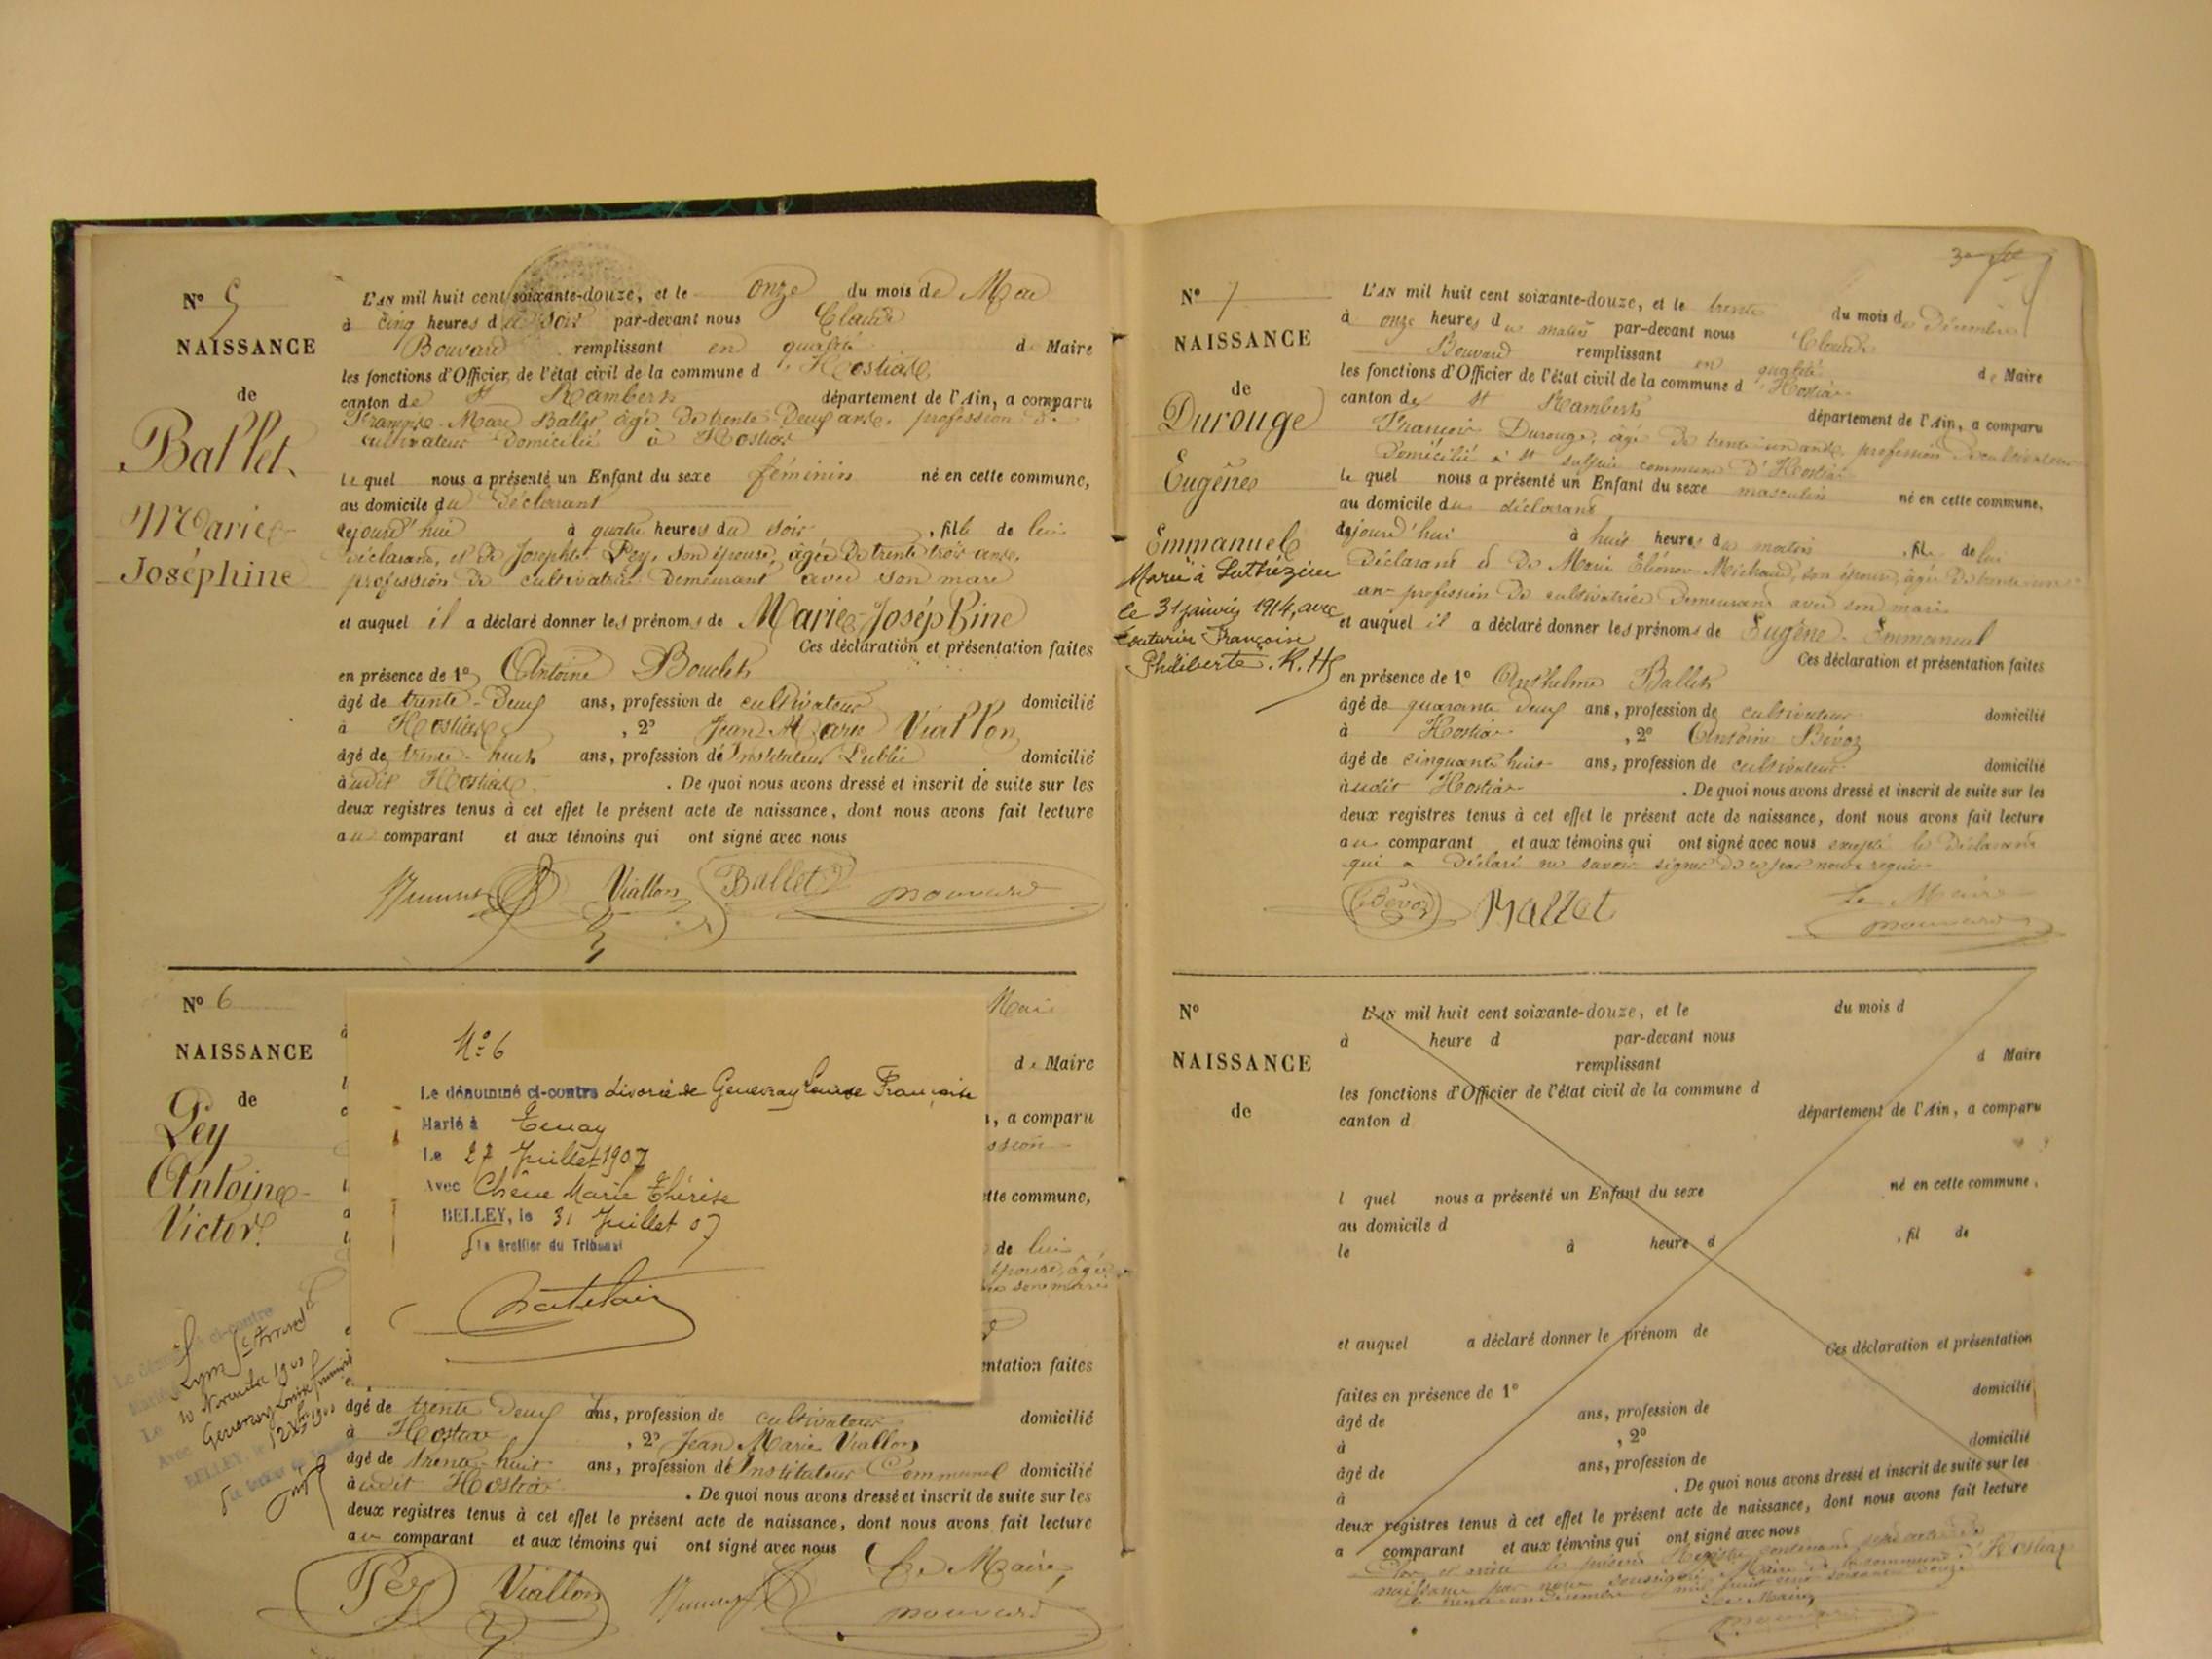 N° 5
NAISSANCE
de
Ballet
Marie
Joséphine
L'AN mil huit cent soixante-douze, et le onze du mois de Mai
à cinq heures du soir par-devant nous Claude
Bouvard remplissant en qualité de Maire
les fonctions d'Officier de l'état civil de la commune d'Hostiaz
canton de St Rambert département de l'Ain, a comparu
Ballet âgé de trente deux ans, profession de
cultivateur domicilié à Hostiaz
lequel nous a présenté un Enfant du sexe féminin né en cette commune,
au domicile du déclarant
cejourd'hui à quatre heures du soir, fille de lui
déclarant, et de Josephte Pey, son épouse, âgée de trente trois ans,
profession de cultivatrice demeurant avec son mari
et auquel il a déclaré donner les prénoms de Marie-Joséphine
Ces déclaration et présentation faites
en présence de 1° Antoine
âgé de trente-deux ans, profession de cultivateur domicilié
à Hostiaz, 2° Jean Marie Viallon
âgé de trente-huit ans, profession de Instituteur Public domicilié
audit Hostiaz. De quoi nous avons dressé et inscrit de suite sur les
deux registres tenus à cet effet le présent acte de naissance, dont nous avons fait lecture
au comparant et aux témoins qui ont signé avec nous
Viallon Ballet Bouvard
N° 6
NAISSANCE
de
Pey
Antoine
Victor
Mai
de Maire
, a comparu
ette commune,
de lui
épouse, âgée
son mari
entation faites
N° 6
Le dénommé ci-contre divorcé de Genevray Louise Françoise
Marié à Tenay
Le 27 Juillet 1907
Avec Chêne Marie Thérèse
BELLEY, le 31 Juillet 07
Le Greffier du Tribunal
âgé de trente deux ans, profession de cultivateur domicilié
à Hostiaz, 2° Jean Marie Viallon
âgé de trente-huit ans, profession de Instituteur Communal domicilié
audit Hostiaz. De quoi nous avons dressé et inscrit de suite sur les
deux registres tenus à cet effet le présent acte de naissance, dont nous avons fait lecture
au comparant et aux témoins qui ont signé avec nous
Le Maire,
Pey Viallon Bouvard
N° 7
NAISSANCE
de
Durouge
Eugène
Emmanuel
Marié à Luthézieu
le 31 janvier 1914, avec
Couturier Françoise
Philiberte.
L'AN mil huit cent soixante-douze, et le trente du mois de Décembre
à onze heures du matin par-devant nous Claude
Bouvard remplissant en qualité de Maire
les fonctions d'Officier de l'état civil de la commune d'Hostiaz
canton de St Rambert département de l'Ain, a comparu
François Durouge, âgé de trente-un ans, profession de cultivateur
domicilié à St Sulpice commune d'Hostiaz
lequel nous a présenté un Enfant du sexe masculin né en cette commune,
au domicile du déclarant
cejourd'hui à huit heures du matin, fils de lui
déclarant et de Marie Eléonor Michaud, son épouse, âgée de trente-un
ans profession de cultivatrice demeurant avec son mari
et auquel il a déclaré donner les prénoms de Eugène Emmanuel
Ces déclaration et présentation faites
en présence de 1° Anthelme Ballet
âgé de quarante deux ans, profession de cultivateur domicilié
à Hostiaz, 2° Antoine Bévoz
âgé de cinquante huit ans, profession de cultivateur domicilié
audit Hostiaz. De quoi nous avons dressé et inscrit de suite sur les
deux registres tenus à cet effet le présent acte de naissance, dont nous avons fait lecture
au comparant et aux témoins qui ont signé avec nous excepté le déclarant
qui a déclaré ne savoir signer de ce par nous requis
Le Maire
Bévoz Ballet Bouvard
N°
NAISSANCE
de
L'AN mil huit cent soixante-douze, et le du mois d
à heure d par-devant nous
remplissant d Maire
les fonctions d'Officier de l'état civil de la commune d
canton d département de l'Ain, a comparu
l quel nous a présenté un Enfant du sexe né en cette commune,
au domicile d
le à heure d , fil de
et auquel a déclaré donner le prénom de
Ces déclaration et présentation
faites en présence de 1°
âgé de ans, profession de domicilié
à , 2°
âgé de ans, profession de domicilié
à . De quoi nous avons dressé et inscrit de suite sur les
deux registres tenus à cet effet le présent acte de naissance, dont nous avons fait lecture
a comparant et aux témoins qui ont signé avec nous
Clos et arrêté le présent Registre contenant sept actes de
naissance par nous soussigné Maire de la commune d'Hostiaz
le trente un Décembre mil huit cent soixante douze
Le Maire
Bouvard